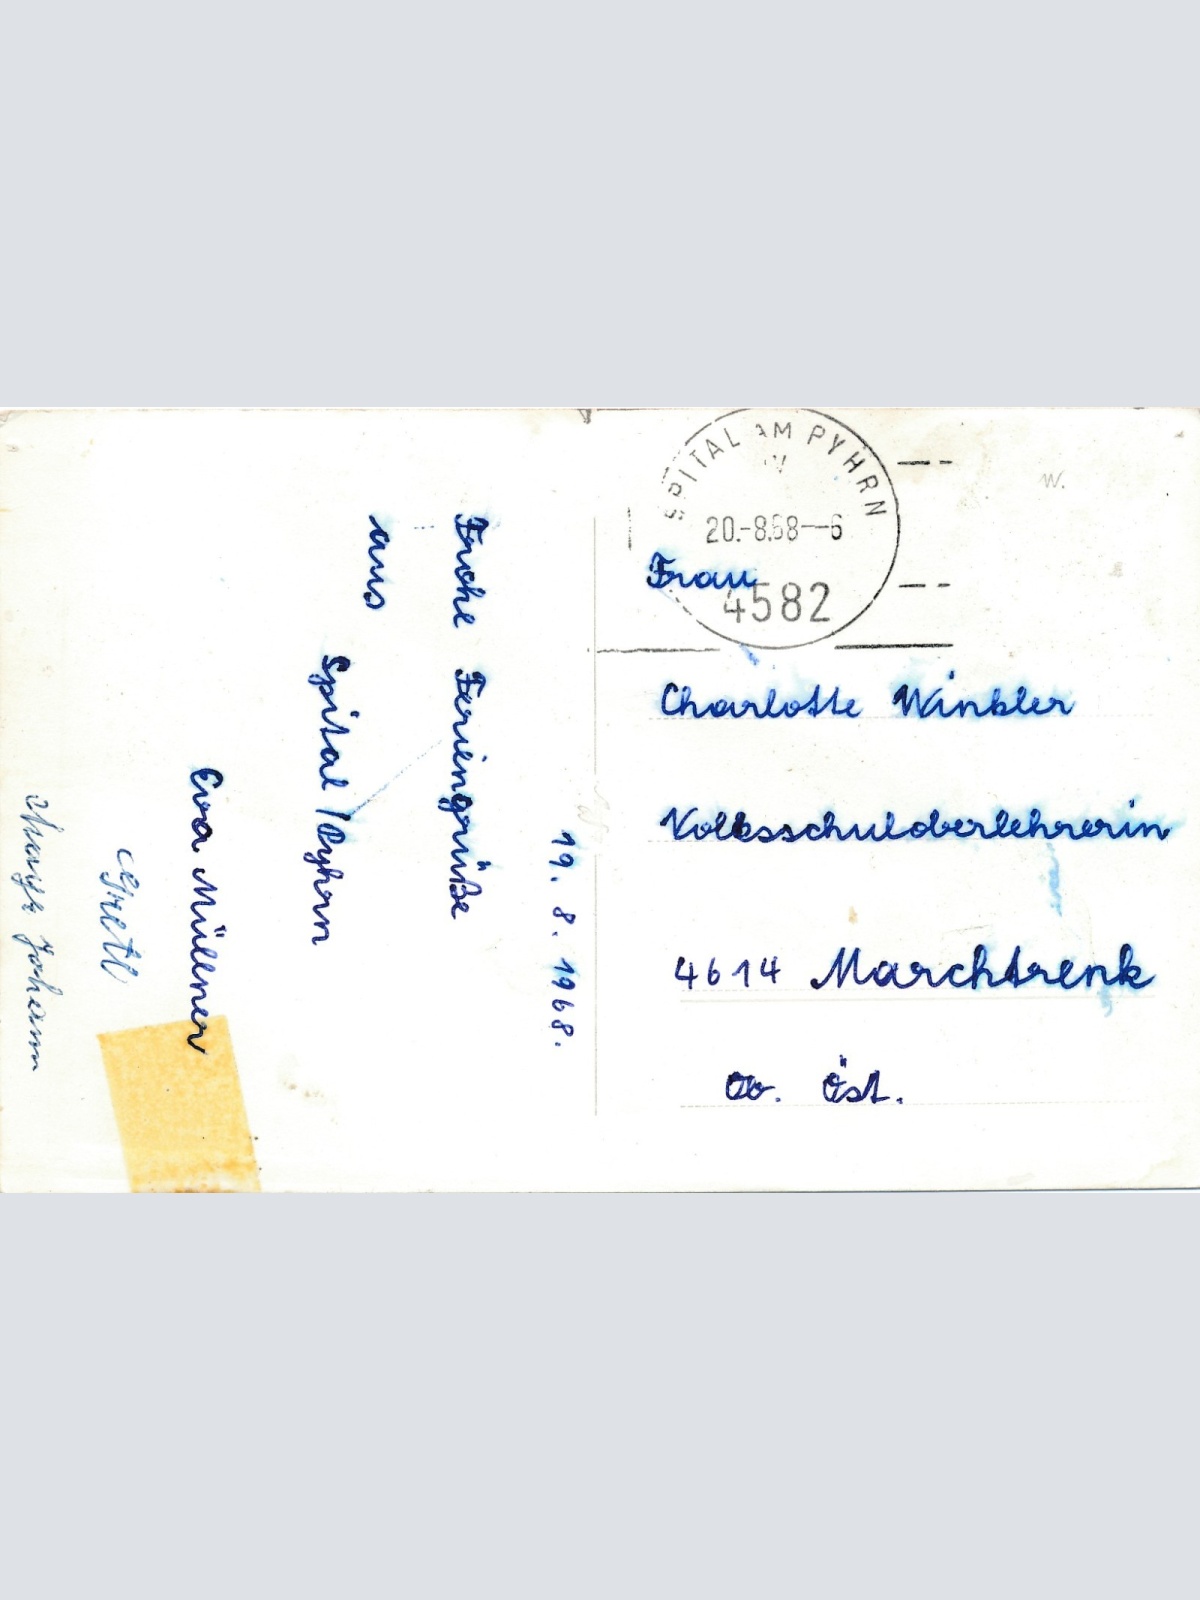 19. 8. 1968.
Frohe Feriengrüße
aus
Spital/Pyhrn
Eva Müllner
Gretl
Johann
SPITAL AM PYHRN
20.-8.68--6
4582
w.
Frau
Charlotte Winkler
Volksschuloberlehrerin
4614 Marchtrenk
Ob. Öst.